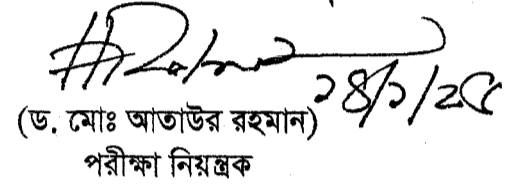 ২৪/১/২৫
(ড. মোঃ আতাউর রহমান)
পরীক্ষা নিয়ন্ত্রক